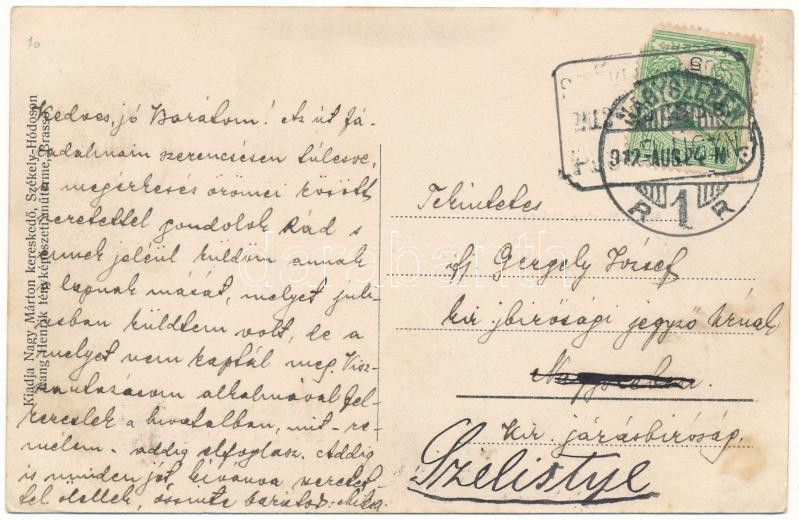 10
Kiadja Nagy Márton kereskedő, Székely-Hódoson
Lang Henrik fényképészeti műterme, Brassó
Kedves, jó Barátom! Az út fá-
radalmain szerencsésen túlesve,
a megérkezés örömei között
szeretettel gondolok Rád s
ennek jeléül küldöm annak
a lapnak mását, melyet juli-
usban küldtem volt, de a
melyet nem kaptál meg. Visz-
szautazásom alkalmával fel-
kereslek a hivatalban, mit re-
mélem addig elfoglasz. Addig
is minden jót kívánva szeretet-
tel ölellek, őszinte barátod:
NAGYSZEBEN
912 AUG 24 N
1
R R
Tekintetes
ifj Gergely József
kir jbirósági jegyző Úrnak
Nagyszeben.
Kir. járásbiróság.
Szelistye
darabanth